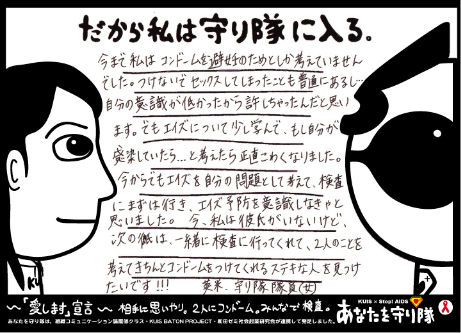 だから私は守り隊に入る.
今まで私はコンドームを避妊のためとしか考えていません
でした。つけないでセックスしてしまったことも普直にあるし…
自分の意識が低かったから許しちゃったんだと思い
ます。でもエイズについて少し学んで、もし自分が
感染していたら…と考えたら正直こわくなりました。
今からでもエイズを自分の問題として考えて、検査
にまずは行き、エイズ予防を意識しなきゃと
思いました。今、私は彼氏がいないけど、
次の彼は、一緒に検査に行ってくれて、2人のことを
考えてきちんとコンドームをつけてくれるステキな人を見つけ
たいです!!! 英米. 守り隊 隊員(女)
KUIS × Stop! AIDS
〜「愛します」宣言〜 相手に思いやり。2人にコンドーム。みんなで検査。 あなたを守り隊
あなたを守り隊は、
KUIS BATON PROJECT